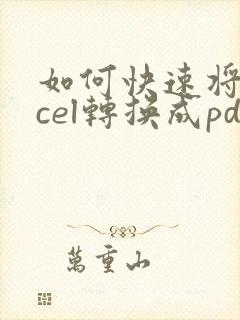 如何快速将
cel轉换成pd
萬重山